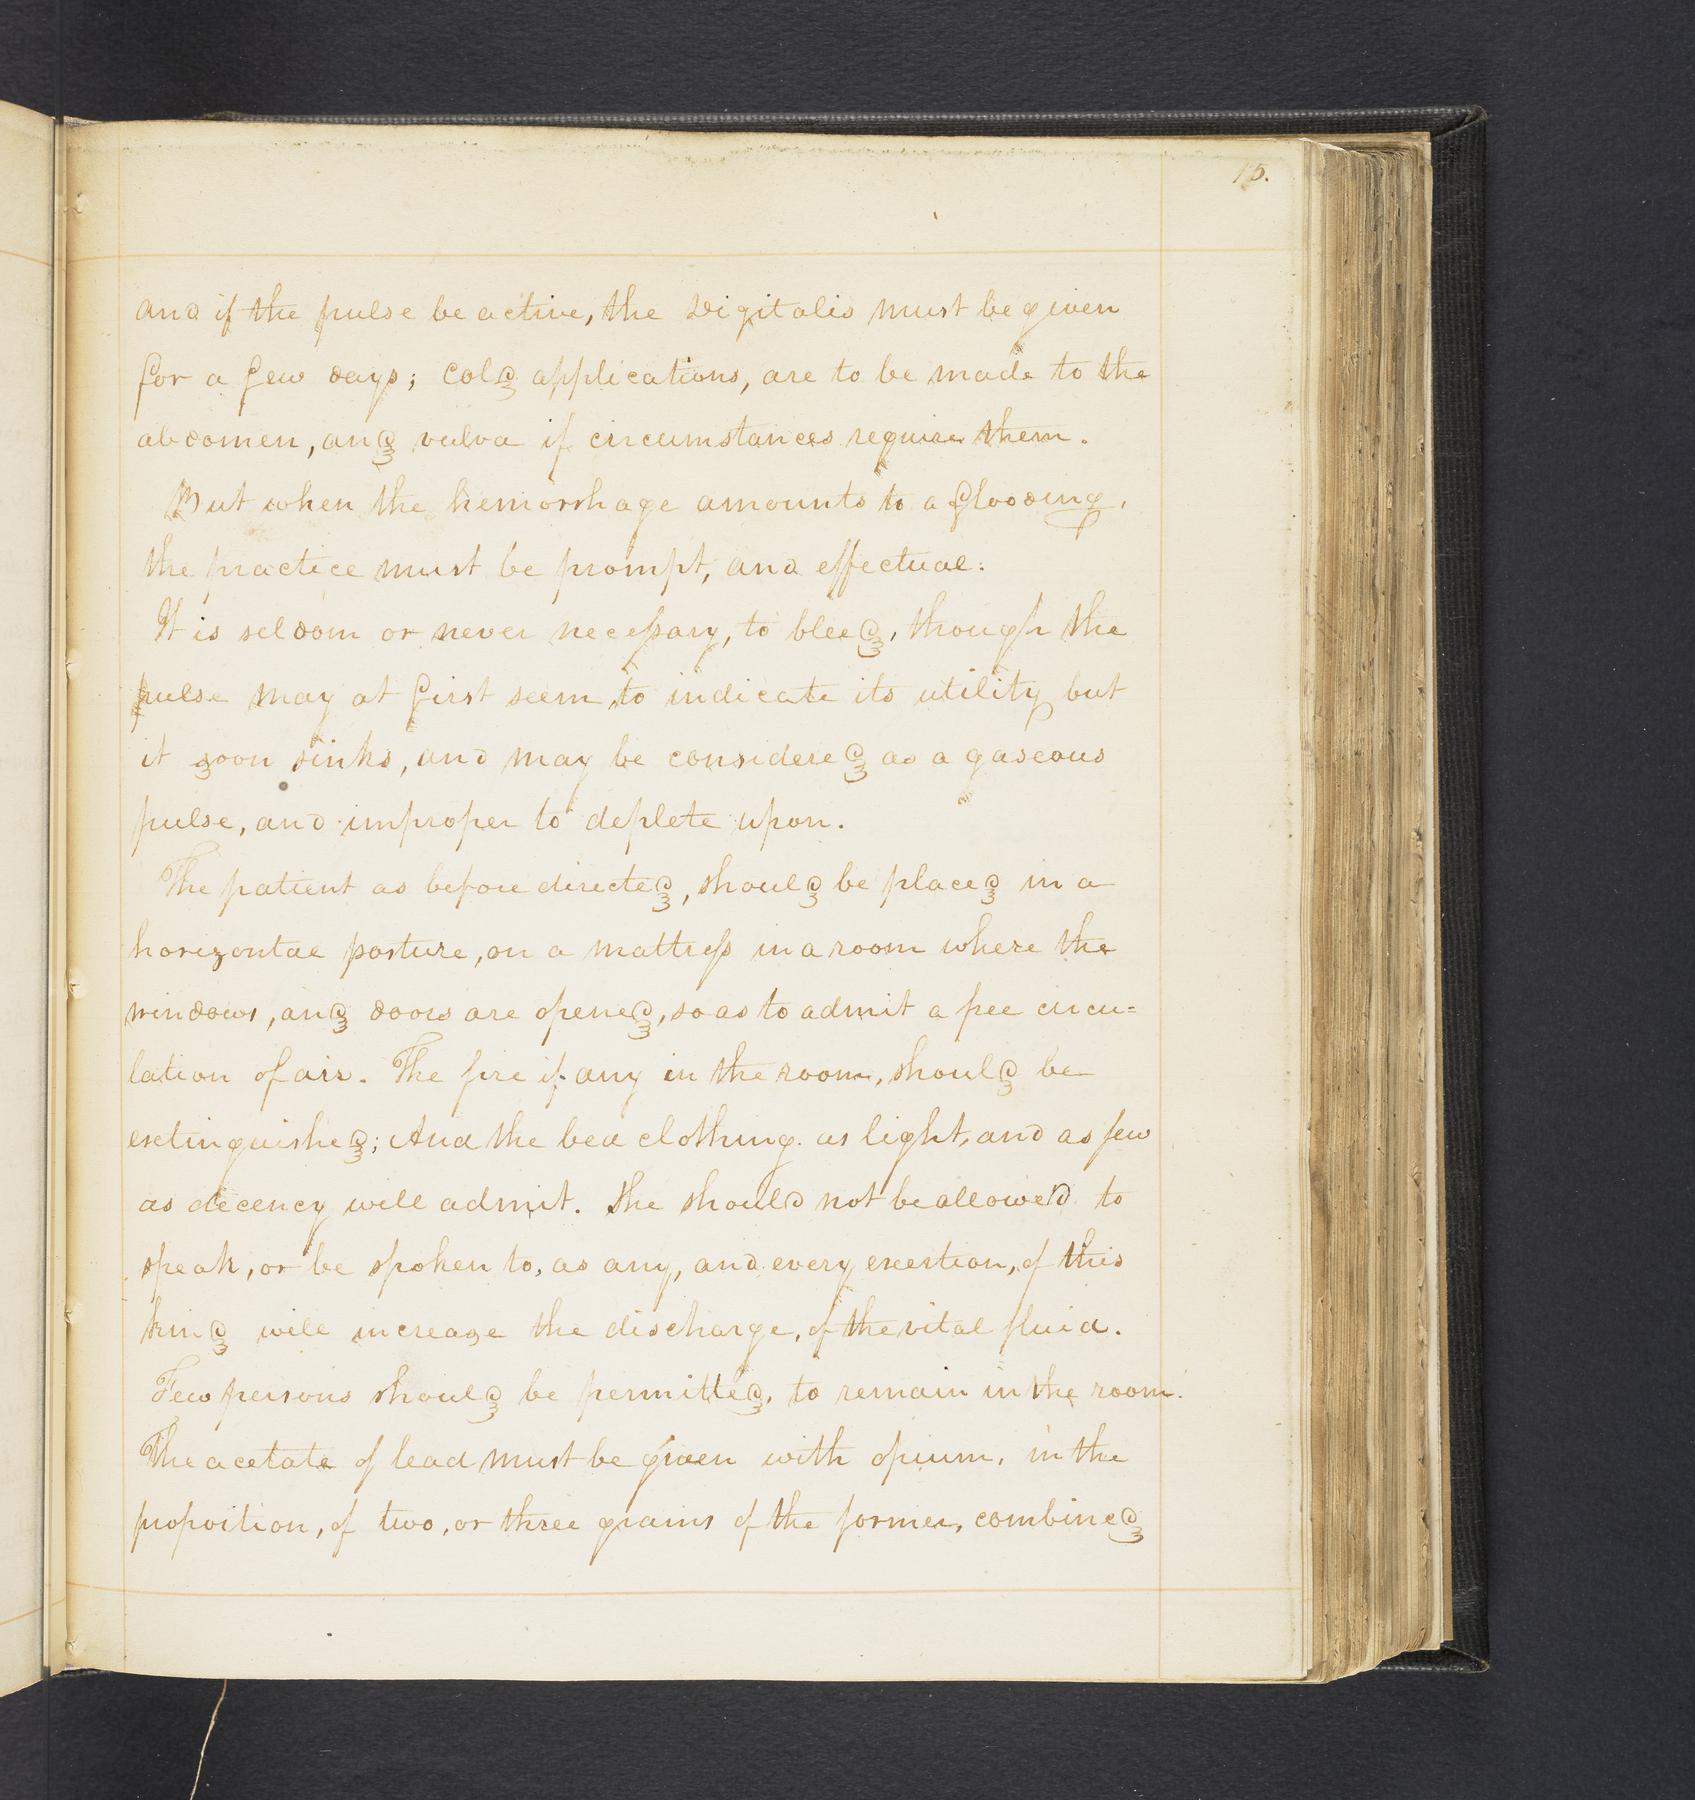 15.
and if the pulse be active, the Digitalis must be given
for a few days; cold applications, are to be made to the
abdomen, and vulva if circumstances require them.
But when the hemorrhage amounts to a flooding,
the practice must be prompt, and effectual:
It is seldom or never necessary, to bleed, though the
pulse may at first seem, to indicate its utility but
it soon sinks, and may be considered as a gaseous
pulse, and improper to deplete upon.
The patient as before directed, should be placed in a
horizontal posture, on a mattress in a room where the
windows, and doors are opened, so as to admit a free circu=
lation of air. The fire if any in the room, should be
extinguished; And the bed clothing as light, and as few
as decency will admit. She should not be allowed to
speak, or be spoken to, as any, and every exertion, of this
kind will increase the discharge, of the vital fluid.
Few persons should be permitted, to remain in the room.
The acetate of lead must be given with opium, in the
proportion, of two, or three grains of the former, combined